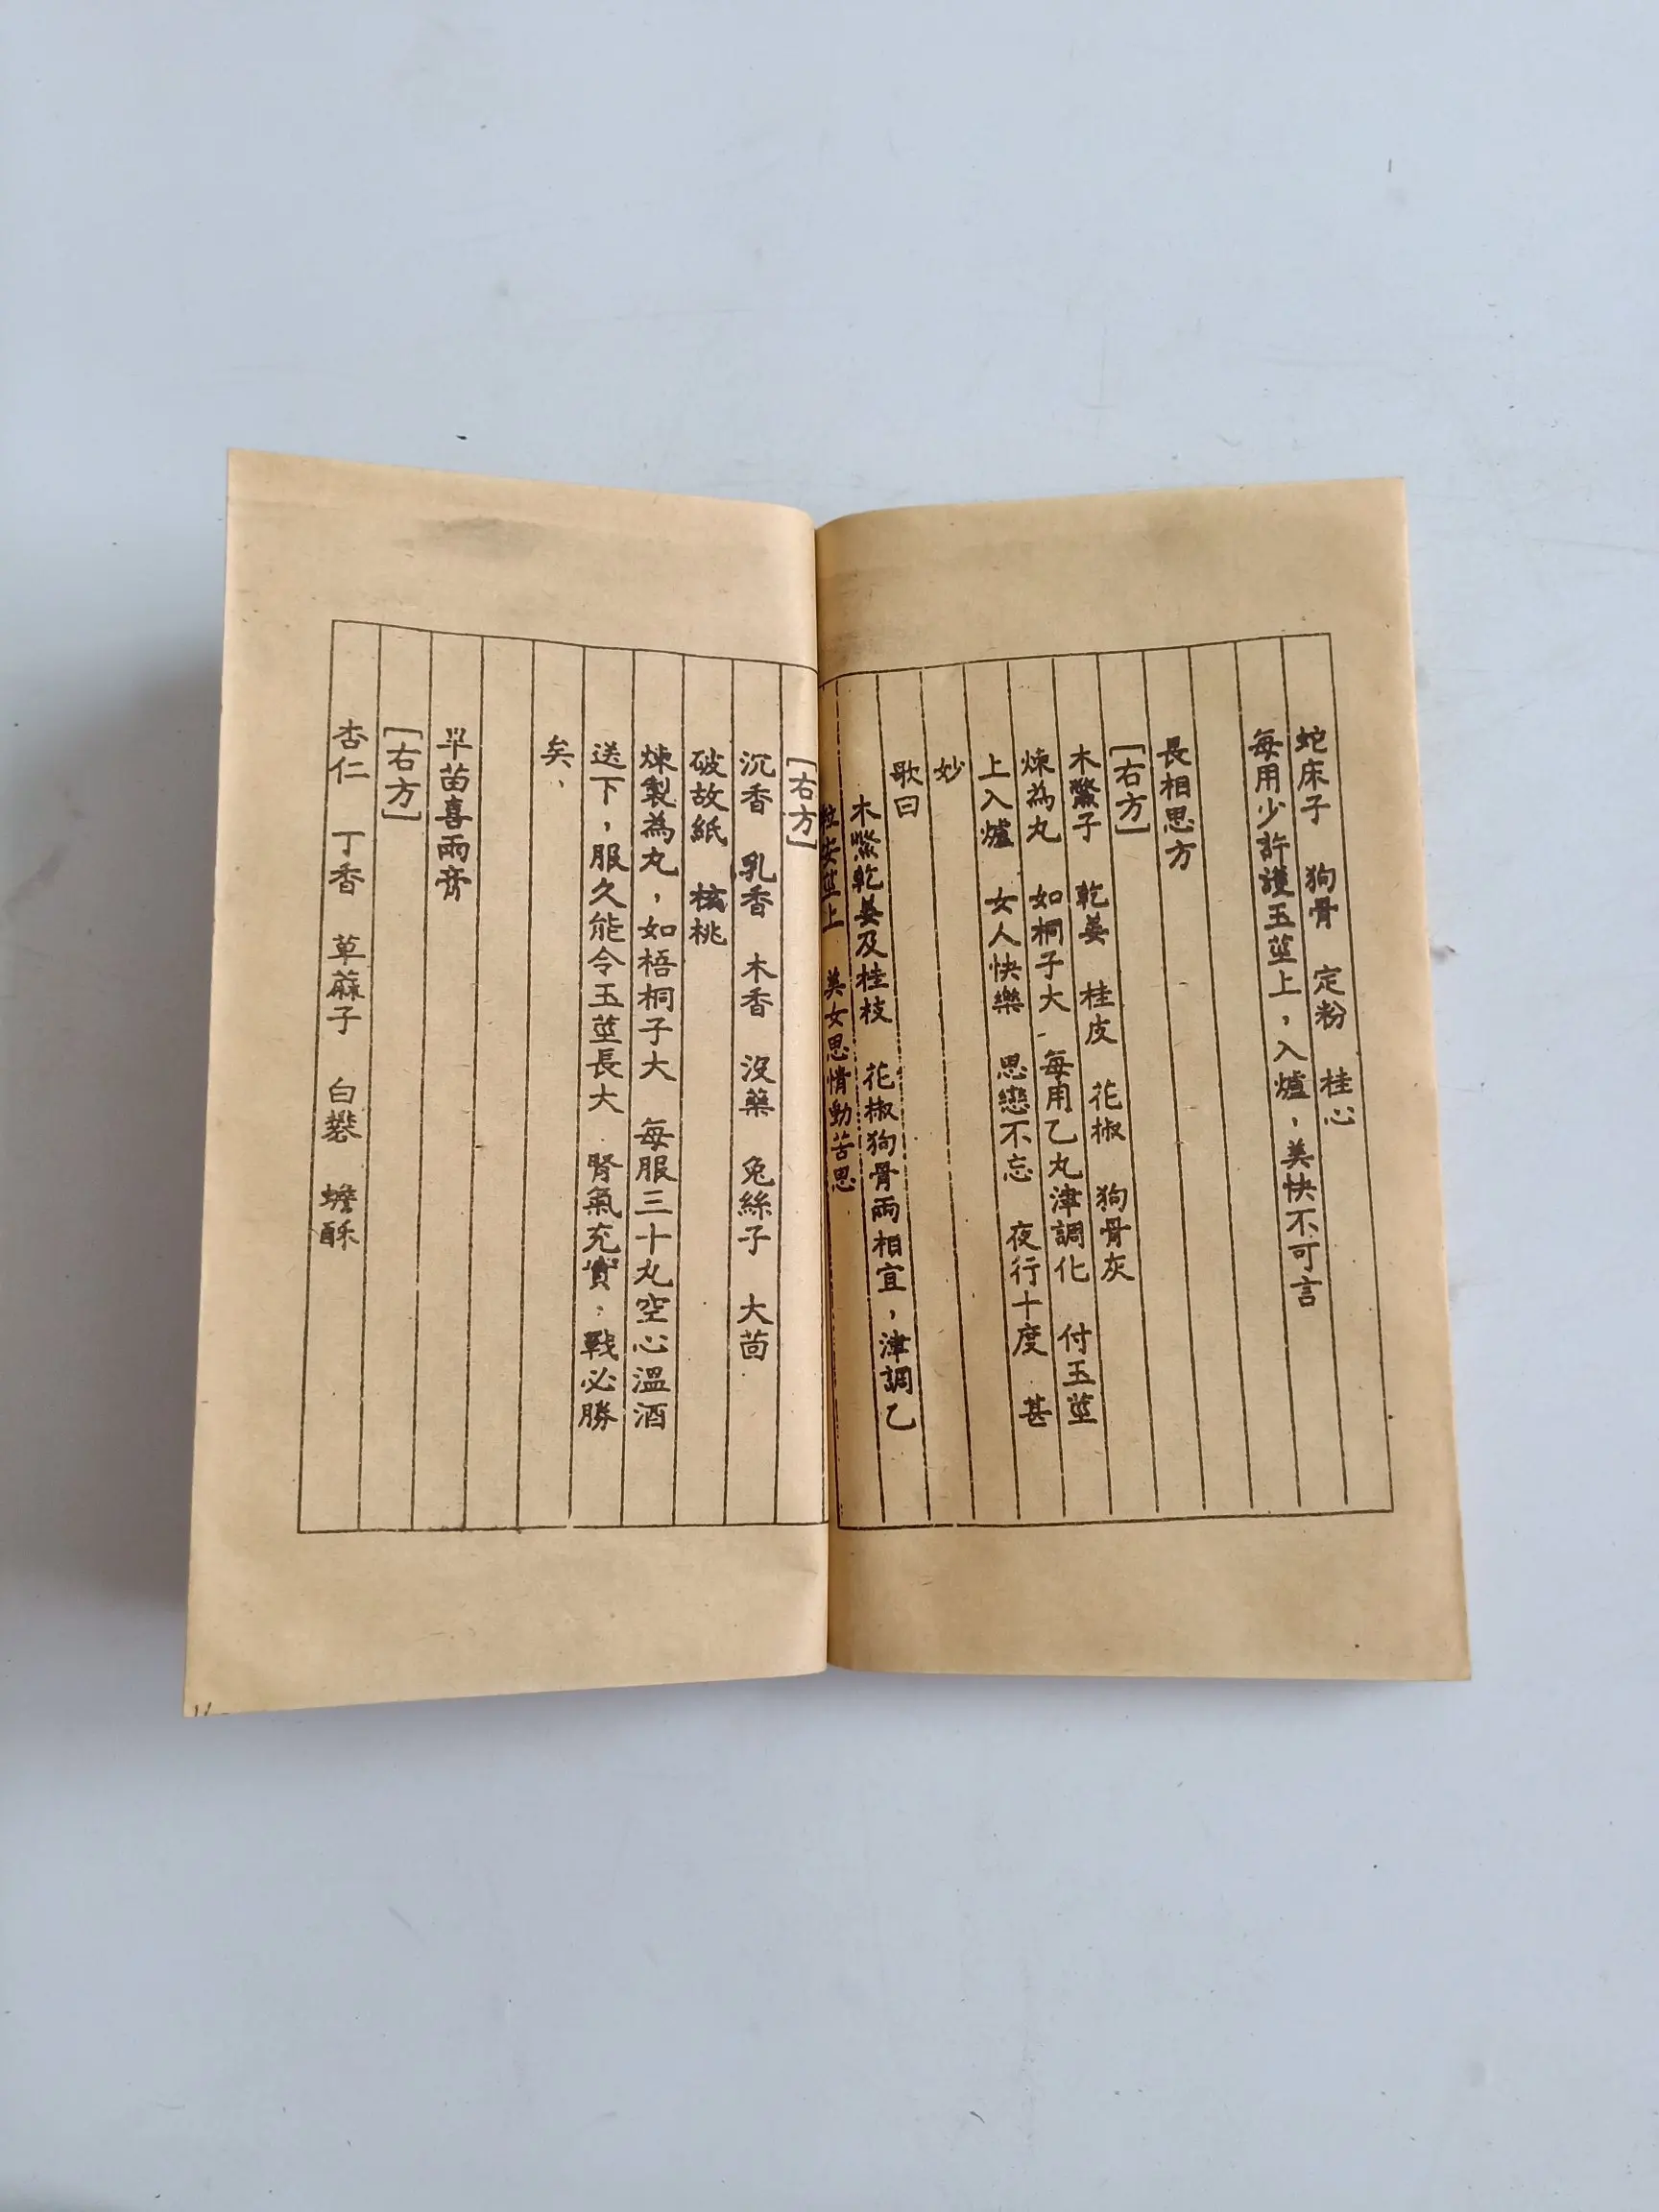 蛇床子　狗骨　定粉　桂心
每用少許護玉莖上，入爐，美快不可言
長相思方
［右方］
木鱉子　乾姜　桂皮　花椒　狗骨灰
煉為丸　如桐子大．每用乙丸津調化　付玉莖
上入爐　女人快樂　思戀不忘　夜行十度．甚
妙
歌曰
木鱉乾姜及桂枝　花椒狗骨兩相宜，津調乙
粒安莖上　美女思情動苦思
［右方］
沉香　乳香　木香　沒藥　兔絲子　大茴
破故紙　核桃
煉製為丸，如梧桐子大　每服三十丸空心溫酒
送下，服久能令玉莖長大．腎氣充實，戰必勝
矣、
旱苗喜雨膏
［右方］
杏仁　丁香　草蔴子　白礬　蟾酥